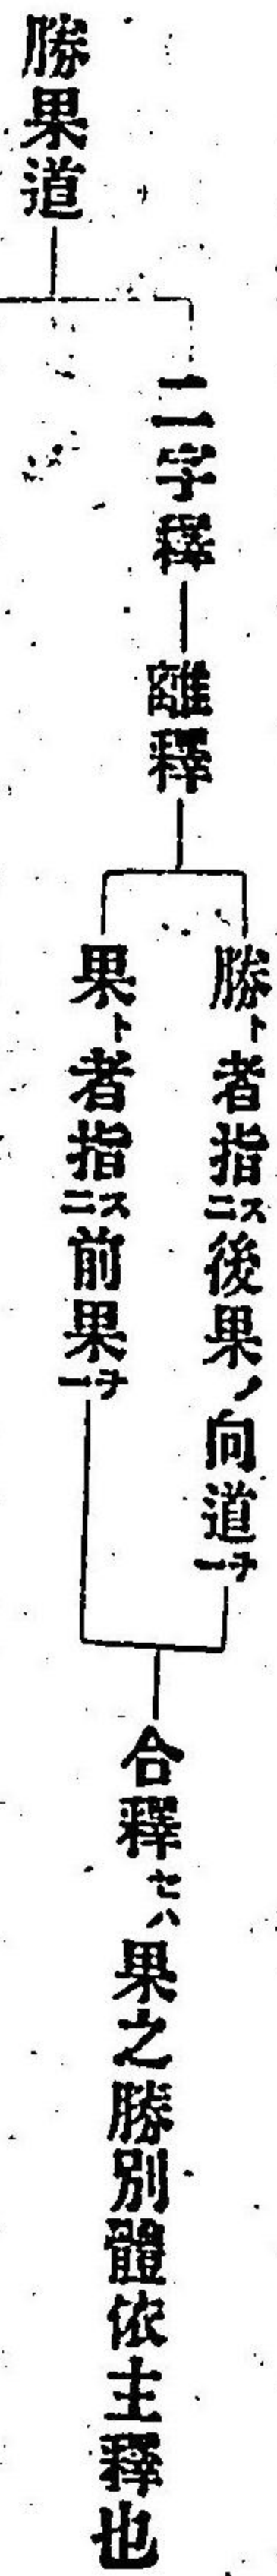 勝果道
二字釋
離釋
勝ト者指ニス後果ノ向道一ヲ
果ト者指ニス前果一ヲ
合釋セハ果之勝別體依主釋也